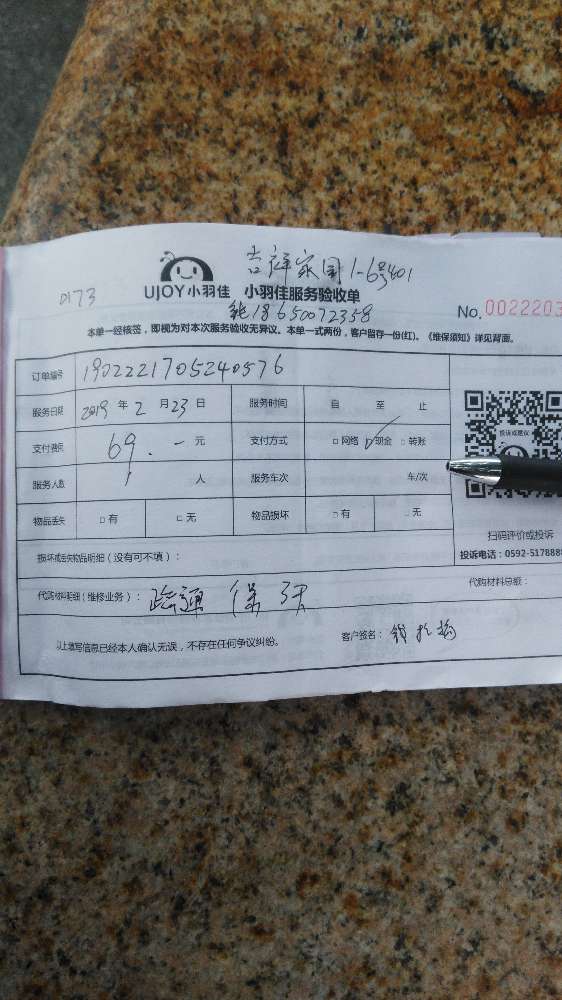 吉祥家园1-6号401
0173
UJOY小羽佳 小羽佳服务验收单
18650072358
No. 0022203
本单一经核签，即视为对本次服务验收无异议。本单一式两份，客户留存一份(红)。《维保须知》详见背面。
订单编号 1902221705240576
服务日期 2019 年 2 月 23 日 服务时间 自 至 止
支付费用 69.- 元 支付方式 □网络 ☑现金 □转账
服务人数 1 人 服务车次 车/次
投诉或建议
物品丢失 □有 □无 物品损坏 □有 □无
扫码评价或投诉
损坏或丢失物品明细（没有可不填）：
投诉电话：0592-517888
代购材料明细（维修业务）： 疏通 保 天
代购材料总额：
以上填写信息已经本人确认无误，不存在任何争议纠纷。 客户签名：